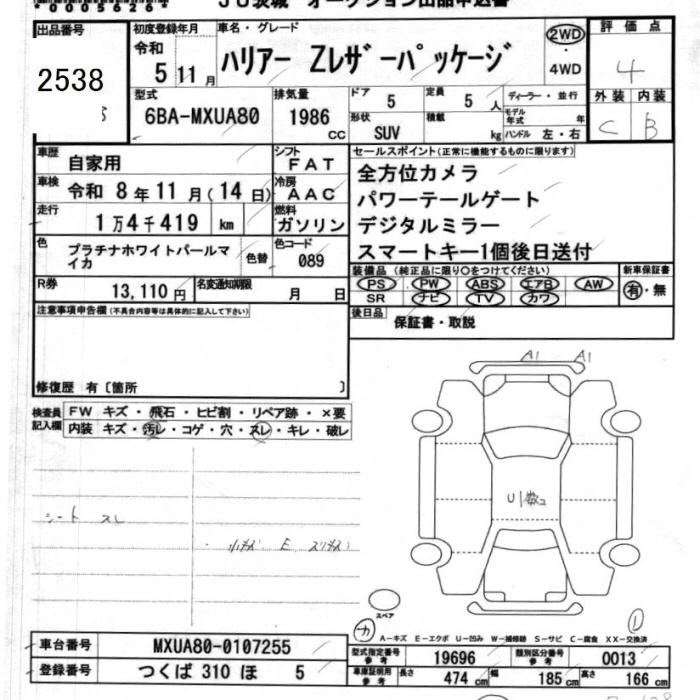 00056266
JU茨城 オークション出品申込書
出品番号
2538
初度登録年月
令和
5 11月
車名・グレード
ハリアー Zレザーパッケージ
2WD
・
4WD
評価点
4
外装 内装
C B
型式
6BA-MXUA80
排気量
1986
CC
ドア
5
定員
5 人
形状
SUV
積載
kg
ディーラー・並行
モデル年式 年
ハンドル 左・右
車歴
自家用
シフト
FAT
車検
令和 8年11月(14日)
冷房
AAC
走行
1万4千419 km
燃料
ガソリン
色
プラチナホワイトパールマイカ
色替
色コード
089
R券
13,110円
名変通知期限
月 日
セールスポイント(正常に機能するものに限ります)
全方位カメラ
パワーテールゲート
デジタルミラー
スマートキー1個後日送付
装備品(純正品に限り○をつけてください)
PS PW ABS エアB AW
SR ナビ TV カワ
新車保証書
有・無
後日品
保証書・取説
注意事項申告欄(不具合内容等は具体的に記入して下さい)
修復歴 有〔箇所 〕
検査員記入欄
FW キズ・飛石・ヒビ割・リペア跡・×要
内装 キズ・汚レ・コゲ・穴・スレ・キレ・破レ
シート スレ
小キズ E スリキズ
A1 A1
U1数コ
スペア
カ
1
A-キズ E-エクボ U-凹み W-補修跡 S-サビ C-腐食 XX-交換済
車台番号
MXUA80-0107255
登録番号
つくば 310 ほ 5
型式指定番号
参考
19696
類別区分番号
参考
0013
車庫証明用
参考
長さ
474 cm
幅
185 cm
高さ
166 cm